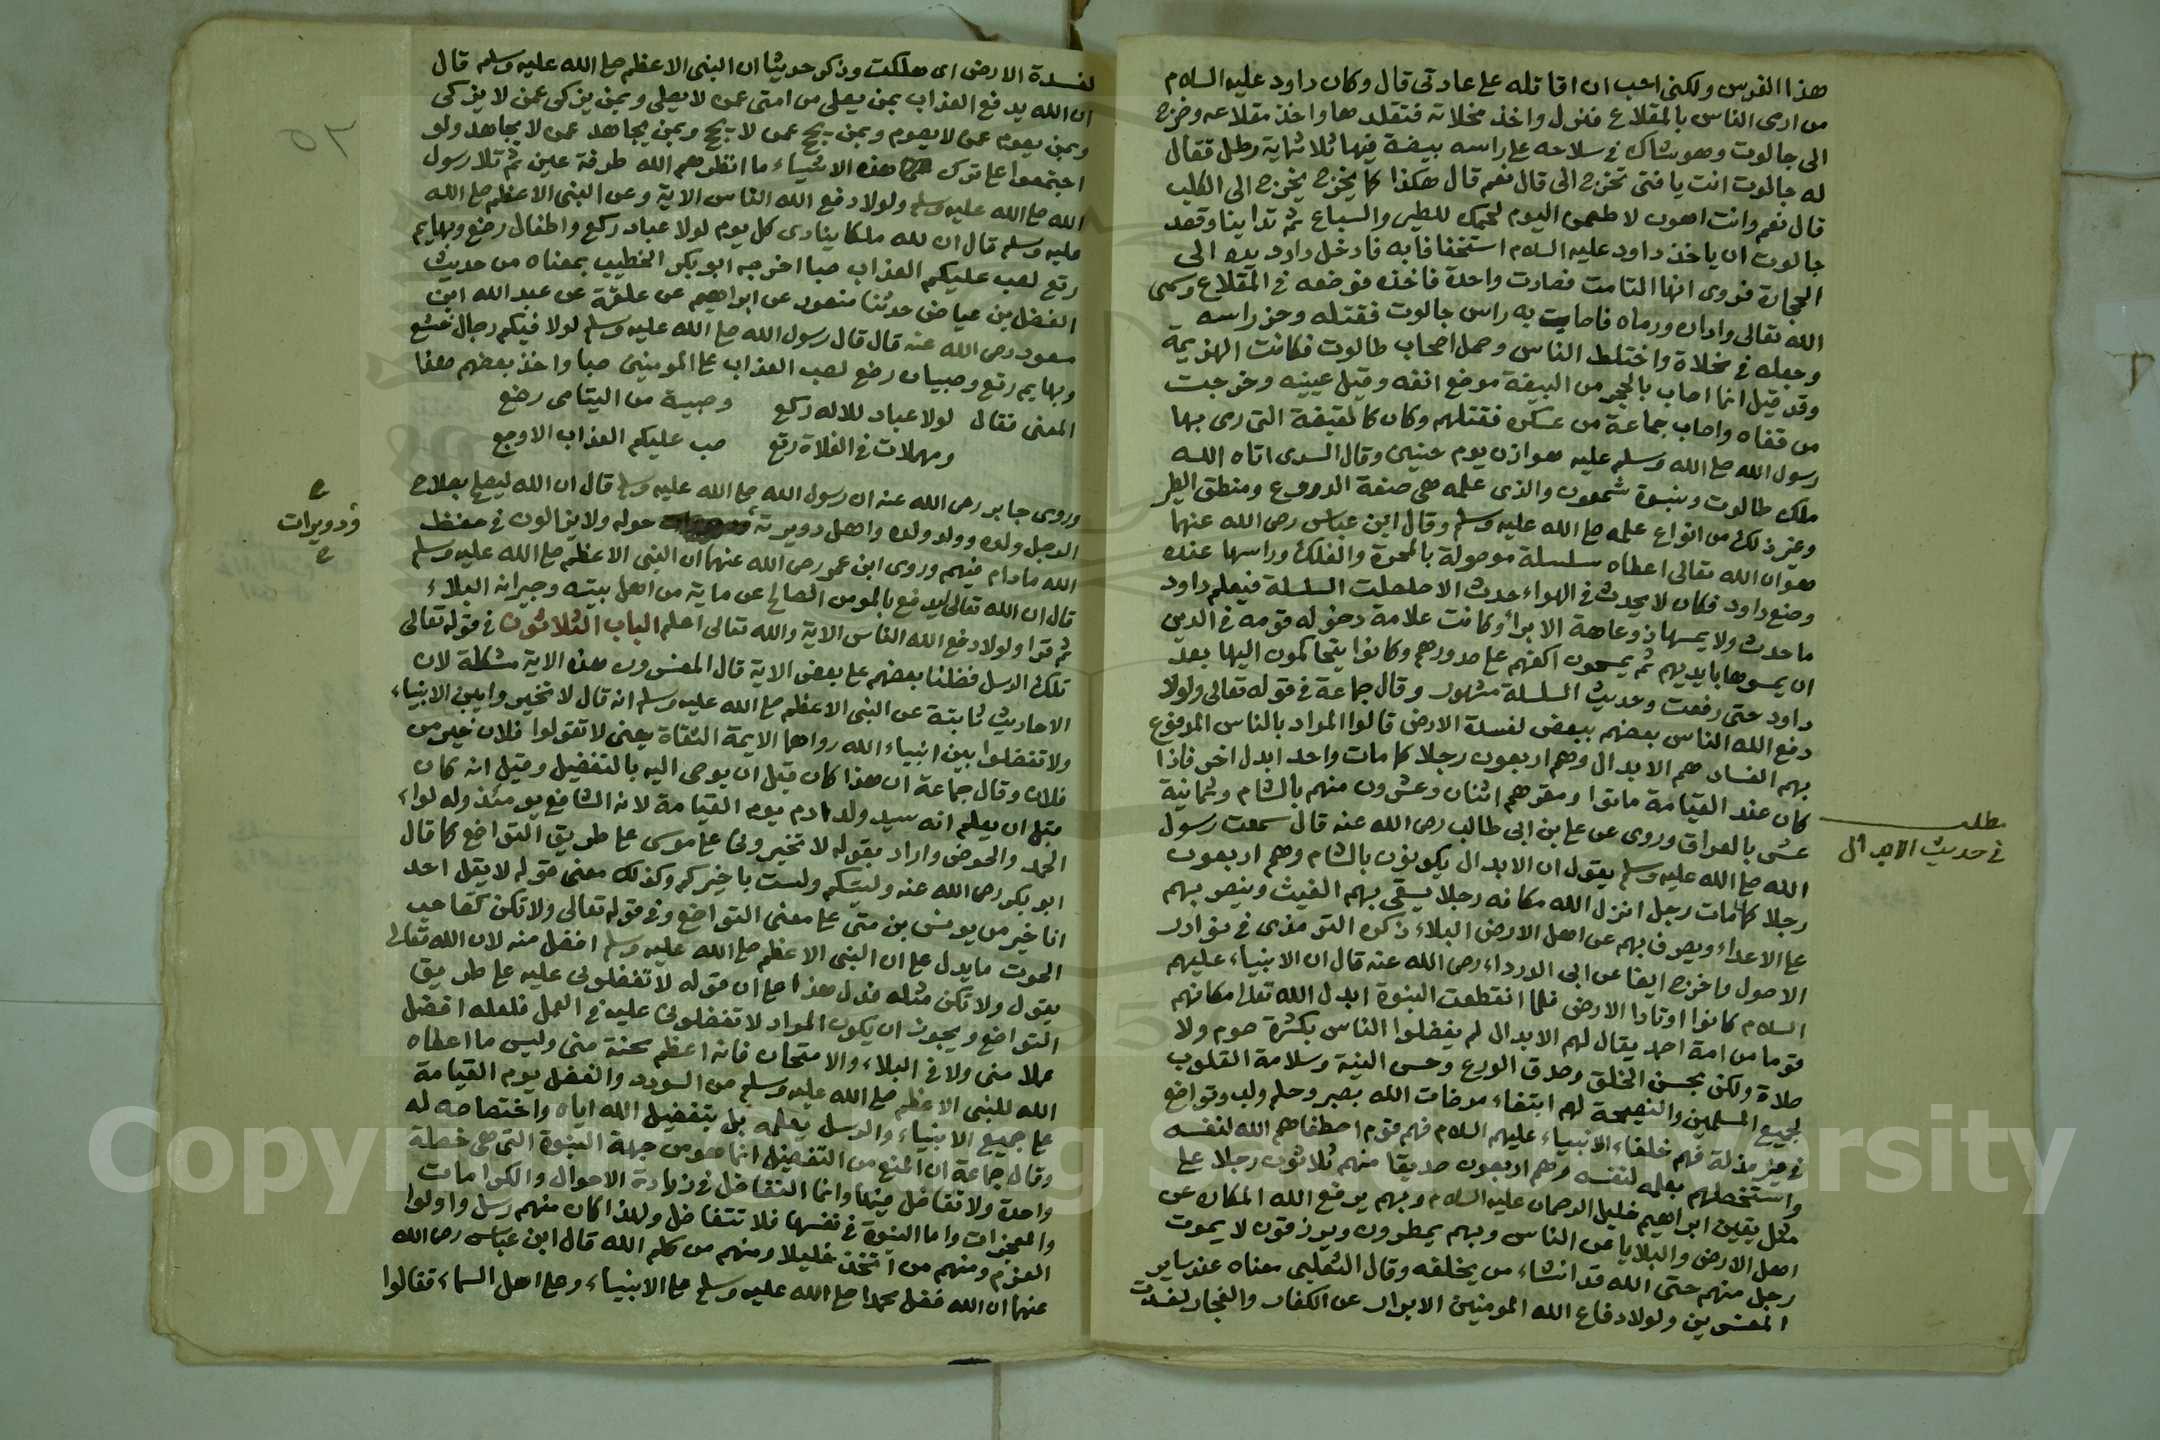 هذا الفرس ولكني احب ان اقاتله على عادتي قال وكان داود عليه السلام
من ارمى الناس بالمقلاع فنزل واخذ مخلاته فتقلدها واخذ مقلاعه وخرج
الى جالوت وهو شاك في سلاحه على راسه بيضة فيها ثلاثماية رطل فقال
له جالوت انت يا فتى تخرج الى قال نعم قال هكذا كما يخرج يخرج الى الكلب
قال نعم وانت اهون لا طعمن اليوم لحمك للطير والسباع ثم تداينا وقصد
جالوت ان ياخذ داود عليه السلام استخفافا به فادخل داود يده الى
الحجارة فروى انها التامت فصارت واحدة فاخذه فوضعه في المقلاع وسمى
الله تعالى واداره ورماه فاصاب به راس جالوت فقتله وحز راسه
وجعله في مخلاة واختلط الناس وحمل اصحاب طالوت فكانت الهزيمة
وقد قيل انما اصاب بالحجر من البيضة موضع انفه وقيل عينيه وخرجت
من قفاه واصاب جماعة من عسكره فقتلهم وكان كالقبضة التي رمى بها
رسول الله صلى الله وسلم عليه هوازن يوم حنين وقال السدى اتاه الله
ملك طالوت ونبوة شمعون والذى علمه هي صنعة الدروع ومنطق الطير
وغير ذلك من انواع علمه صلى الله عليه وسلم وقال ابن عباس رضى الله عنهما
هو ان الله تعالى اعطاه سلسلة موصولة بالمجرة والفلك وراسها عنده
وضع داود فكان لا يحدث في الهواء حدث الا صلصلت السلسلة فيعلم داود
ما حدث ولا يمسها ذو عاهة الا برأ وكانت علامة دخوله قومه في الدين
ان يمسوها بايديهم ثم يمسحون اكفهم على صدورهم وكانوا يتحاكمون اليها بعد
داود حتى رفعت وحديث السلسلة مشهور وقال جماعة في قوله تعالى ولولا
دفع الله الناس بعضهم ببعض لفسدة الارض قالوا المراد بالناس المدفوع
بهم الفساد هم الابدال وهم اربعون رجلا كلما مات واحد ابدل اخر فاذا
كان عند القيامة ماتوا ومقرهم اثنان وعشرون منهم بالشام وثمانية
عشر بالعراق وروى عن على بن ابى طالب رضى الله عنه قال سمعت رسول
الله صلى الله عليه وسلم يقول ان الابدال يكونون بالشام وهم اربعون
رجلا كلما مات رجل انزل الله مكانه رجلا يسقى بهم الغيث وينصر بهم
على الاعداء ويصرف بهم عن اهل الارض البلاء ذكره الترمذى في نوادر
الاصول واخرج ايضا عن ابى الدرداء رضى الله عنه قال ان الانبياء عليهم
السلام كانوا اوتادا الارض فلما انقطعت النبوة ابدل الله تعالى مكانهم
قوما من امة احمد يقال لهم الابدال لم يفضلوا الناس بكثرة صوم ولا
صلاة ولكن بحسن الخلق وصدق الورع وحسن النية وسلامة القلوب
لجميع المسلمين والنصيحة لهم ابتغاء مرضات الله بصبر وحلم ولب وتواضع
في غير مذلة فهم خلفاء الانبياء عليهم السلام فهم قوم اصطفاهم الله لنفسه
واستخصلهم بعلمه لنفسه وهم اربعون صديقا منهم ثلاثون رجلا على
مثل يقين ابراهيم خليل الرحمان عليه السلام وبهم يدفع الله المكاره عن
اهل الارض والبلايا عن الناس وبهم يمطرون ويرزقون لا يموت
رجل منهم حتى الله قد انشاء من يخلفه وقال الثعلبى معناه عند ساير
المفسرين ولولا دفاع الله المومنين الابرار عن الكفار والفجار لفسدت
مطلب
في حديث الابدال
لفسدة الارض اى هلكت وذكر حديثا ان النبى الاعظم صلى الله عليه وسلم قال
ان الله يدفع العذاب بمن يصلى من امتى عمن لا يصلى وبمن يزكى عمن لا يزكى
وبمن يصوم عمن لا يصوم وبمن يحج عمن لا يحج وبمن يجاهد عمن لا يجاهد ولو
اجتمعوا على ترك هذه الاشياء ما انظرهم الله طرفة عين ثم تلا رسول
الله صلى الله عليه وسلم ولولا دفع الله الناس الاية وعن النبى الاعظم صلى الله
عليه وسلم قال ان لله ملكا ينادى كل يوم لولا عباد ركع واطفال رضع وبهايم
رتع لصب عليكم العذاب صبا اخرجه ابو بكر الخطيب بمعناه من حديث
الفضل بن عياض حدثنا منصور عن ابراهيم عن علقمة عن عبد الله ابن
مسعود رضى الله عنه قال قال رسول الله صلى الله عليه وسلم لولا فيكم رجال خشع
وبهايم رتع وصبيان رضع لصب العذاب على المومنين صبا واخذ بعضهم هذا
المعنى فقال لولا عباد للاله ركع وصبية من اليتامى رضع
ومهملات في الفلاة رتع صب عليكم العذاب الاوجع
وروى جابر رضى الله عنه ان رسول الله صلى الله عليه وسلم قال ان الله ليصلح بصلاح
الرجل ولده وولد ولده واهل دويرته حوله ولا يزالون في حفظ
الله ما دام فيهم وروى ابن عمر رضى الله عنهما ان النبى الاعظم صلى الله عليه وسلم
قال ان الله تعالى ليدفع بالمومن الصالح عن ماية من اهل بيته وجيرانه البلاء
ثم قرا ولولا دفع الله الناس الاية والله تعالى اعلم الباب الثلاثون في قوله تعالى
تلك الرسل فضلنا بعضهم على بعض الاية قال المفسرون هذه الاية مشكلة لان
الاحاديث ثابتة عن النبى الاعظم صلى الله عليه وسلم انه قال لا تخيروا بين الانبياء
ولا تفضلوا بين انبياء الله رواها الايمة الثقاة يعنى لا تقولوا فلان خير من
فلان وقال جماعة ان هذا كان قبل ان يوحى اليه بالتفضيل وقيل انه كان
قبل ان يعلم انه سيد ولد ادم يوم القيامة لانه الشافع يومئذ وله لواء
الحمد والحوض واراد بقوله لا تخيرونى على موسى على طريق التواضع كما قال
ابو بكر رضى الله عنه وليتكم ولست باخيركم وكذلك معنى قوله لا يقل احد
انا خير من يونس بن متى على معنى التواضع وفي قوله تعالى ولا تكن كصاحب
الحوت ما يدل على ان النبى الاعظم صلى الله عليه وسلم افضل منه لان الله تعالى
يقول ولا تكن مثله فدل هذا على ان قوله لا تفضلونى عليه على طريق
التواضع ويجوز ان يكون المراد لا تفضلونى عليه في العمل فلعله افضل
عملا منى ولا في البلاء والامتحان فانه اعظم محنة منى وليس ما اعطاه
الله للنبى الاعظم صلى الله عليه وسلم من السودد والفضل يوم القيامة
على جميع الانبياء والرسل يعلمه بل بتفضيل الله اياه واختصاصه له
وقال جماعة ان المنع من التفضيل انما هو من جهة النبوة التى هى خصلة
واحدة ولا تفاضل فيها وانما التفاضل في زيادة الاحوال والكرامات
والمعجزات واما النبوة في نفسها فلا تتفاضل ولهذا كان منهم رسل واولوا
العزم ومنهم من اتخذ خليلا ومنهم من كلم الله قال ابن عباس رضى الله
عنهما ان الله فضل محمدا صلى الله عليه وسلم على الانبياء وعلى اهل السماء فقالوا
ودويرات
٥٣
Copyright © King Saud University
1957